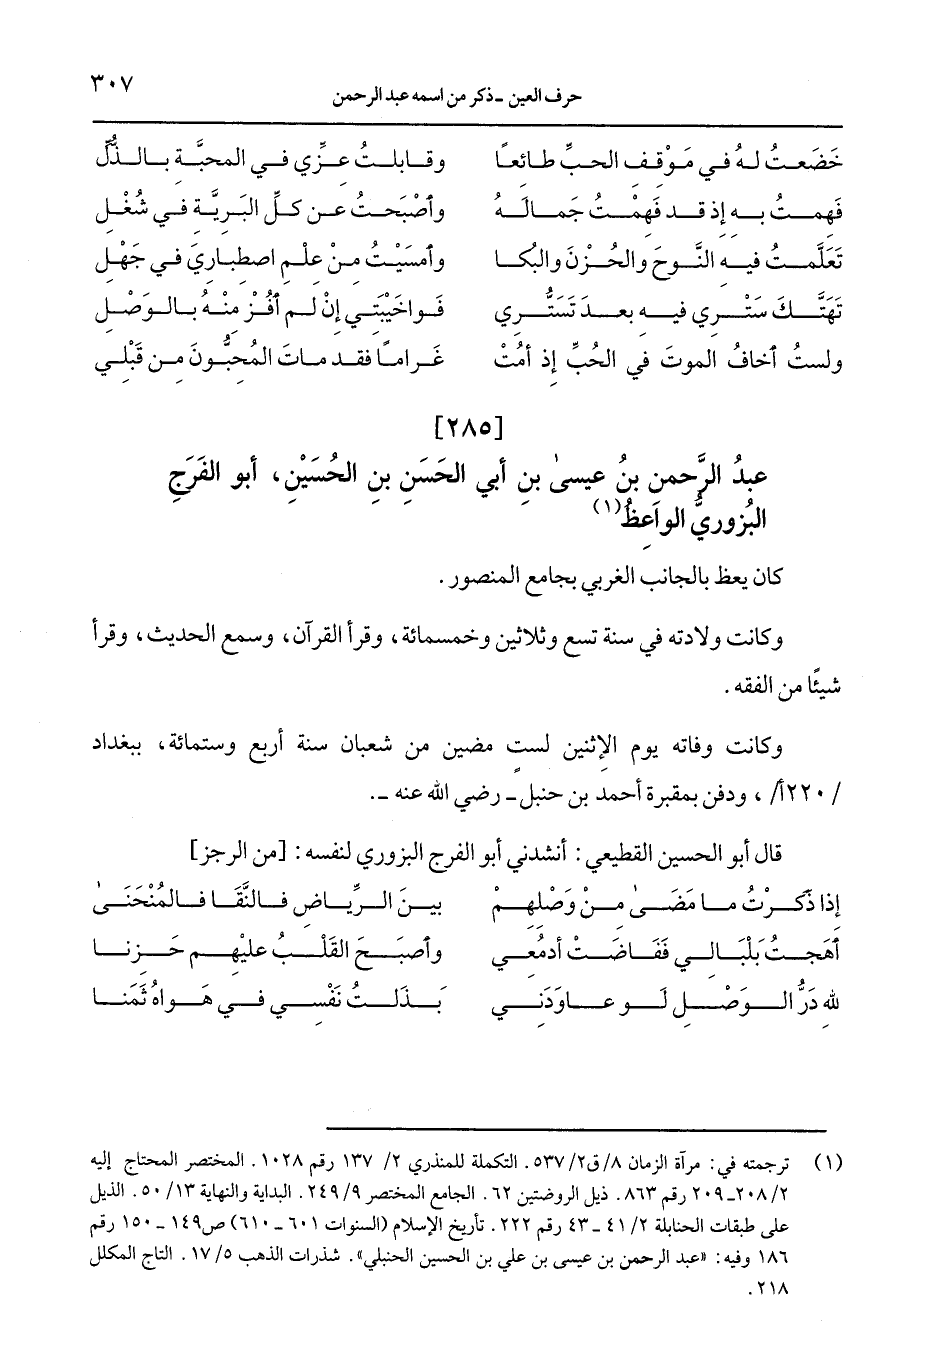 حرف العين - ذكر من اسمه عبد الرحمن ٣٠٧
خَضَعتُ لهُ في مَوْقف الحبِّ طائعًا وقابلتُ عزِّي في المحبَّة بالذُّلِّ
فهِمتُ به إذ قد فَهِمْتُ جَمالَهُ وأصْبَحتُ عن كلِّ البَريَّة في شُغْلِ
تَعَلَّمتُ فيه النَّوحَ والحُزْنَ والبُكا وأمسَيْتُ منْ علْمِ اصطباريَ في جَهْلِ
تَهَتَّكَ سَتْري فيه بعدَ تَسَتُّري فَواخَيْبَتي إنْ لم أفُزْ منْهُ بالوَصْلِ
ولستُ أخافُ الموتَ في الحُبِّ إذ أمُتْ غَرامًا فقد ماتَ المُحِبُّونَ من قَبْلي
[٢٨٥]
عبدُ الرَّحمنِ بنُ عيسىٰ بنِ أبي الحَسَنِ بنِ الحُسَيْنِ، أبو الفَرَجِ
البُزوريُّ الواعِظُ(١)
كان يعظ بالجانب الغربي بجامع المنصور.
وكانت ولادته في سنة تسع وثلاثين وخمسمائة، وقرأ القرآن، وسمع الحديث، وقرأ
شيئًا من الفقه.
وكانت وفاته يوم الإثنين لستٍ مضين من شعبان سنة أربع وستمائة، ببغداد
/٢٢٠أ/، ودفن بمقبرة أحمد بن حنبل - رضي الله عنه -.
قال أبو الحسين القطيعي: أنشدني أبو الفرج البزوري لنفسه: [من الرجز]
إذا ذَكَرْتُ ما مَضَىٰ منْ وَصْلِهِمْ بينَ الرِّياضِ فالنَّقَا فالمُنْحَنَىٰ
أهَجتُ بَلْبَالي فَفَاضَتْ أدمُعي وأصبَحَ القَلْبُ عليْهِم حَزِنا
لله دَرُّ الوَصْلِ لَو عاوَدَني بَذَلتُ نَفْسي في هَواهُ ثَمَنا
(١) ترجمته في: مرآة الزمان ٨/ق٢/٥٣٧. التكملة للمنذري ٢/ ١٣٧ رقم ١٠٢٨. المختصر المحتاج إليه
٢/ ٢٠٨-٢٠٩ رقم ٨٦٣. ذيل الروضتين ٦٢. الجامع المختصر ٩/ ٢٤٩. البداية والنهاية ١٣/ ٥٠. الذيل
على طبقات الحنابلة ٢/ ٤١ - ٤٣ رقم ٢٢٢. تأريخ الإسلام (السنوات ٦٠١ - ٦١٠) ص١٤٩ - ١٥٠ رقم
١٨٦ وفيه: «عبد الرحمن بن عيسى بن علي بن الحسين الحنبلي». شذرات الذهب ٥/ ١٧. التاج المكلل
٢١٨.